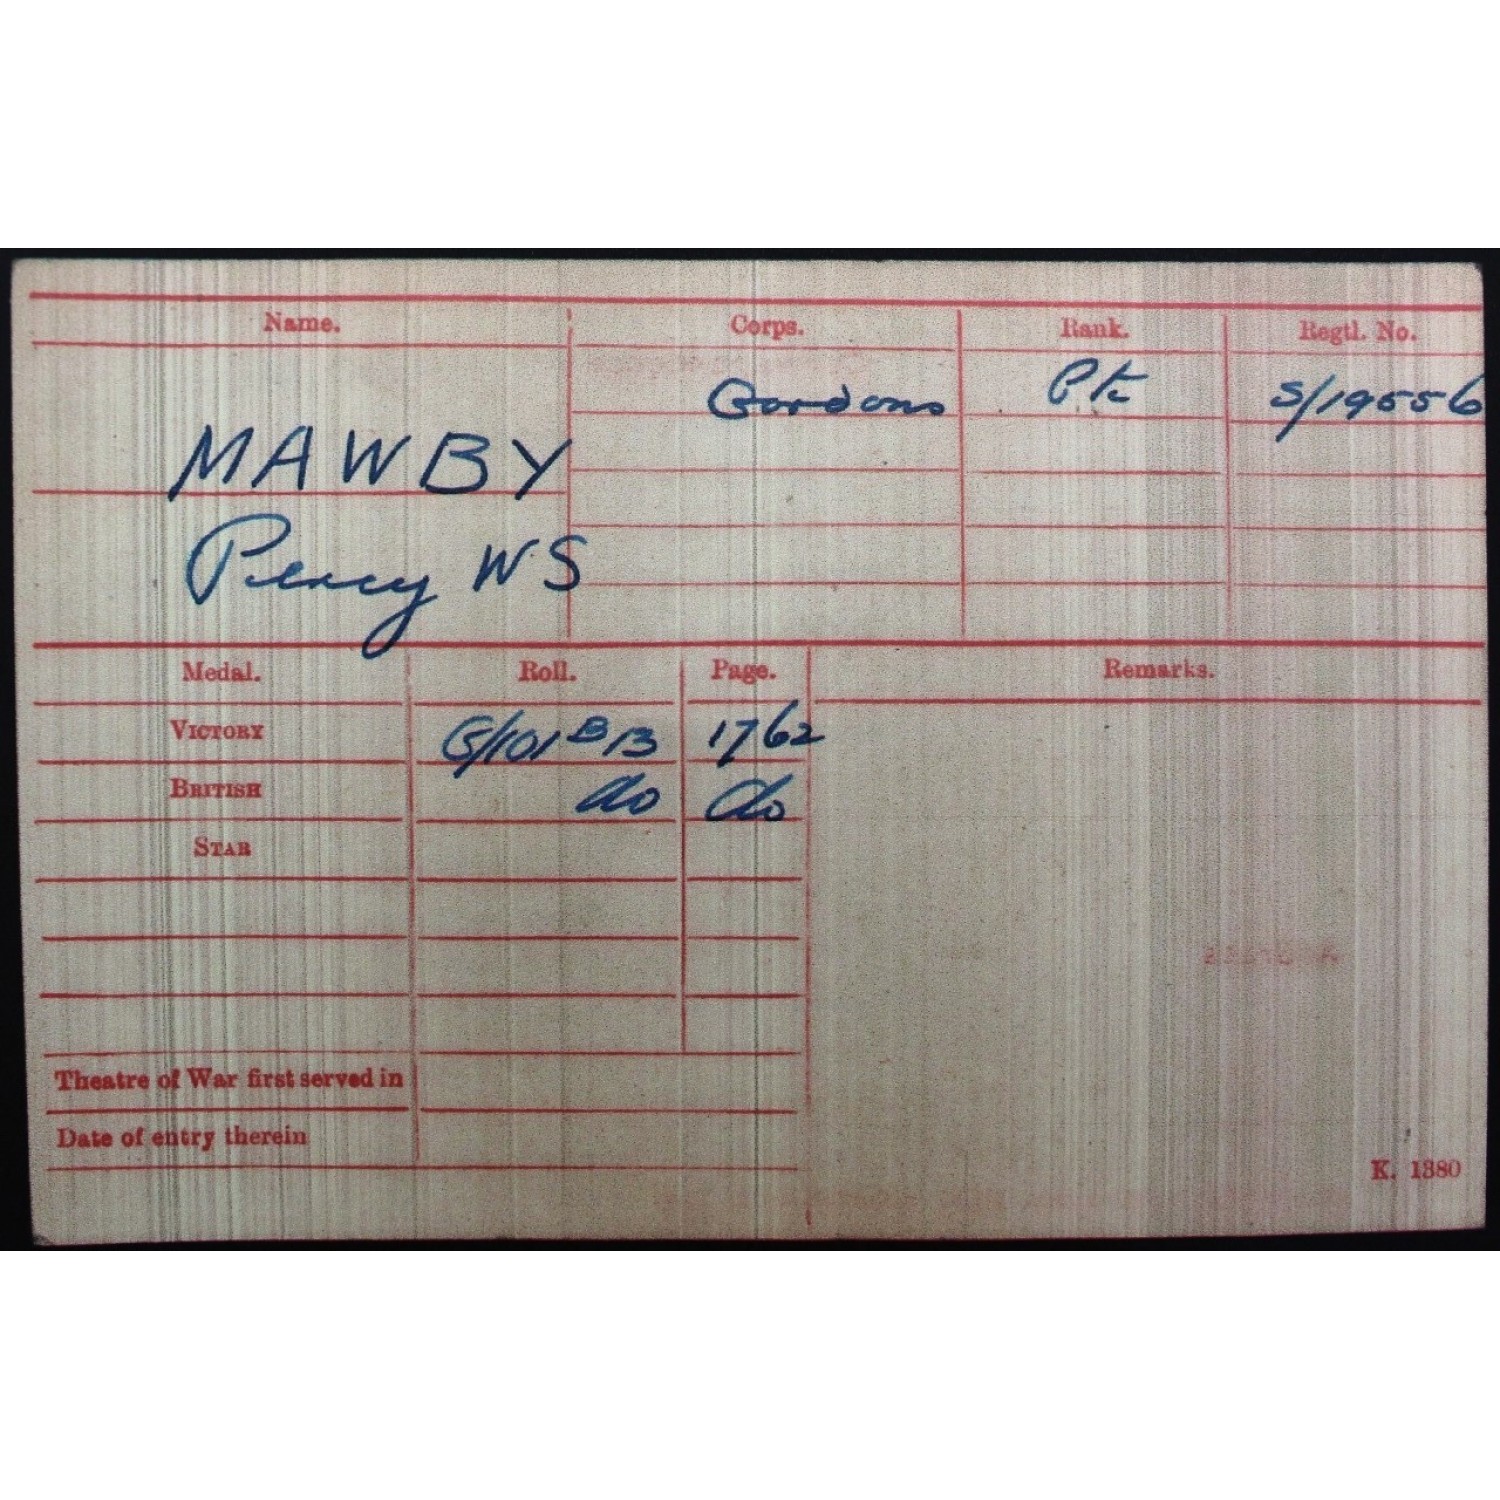 Name. Corps. Rank. Regtl. No.
Gordons Pte S/19556
MAWBY
Percy WS
Medal. Roll. Page. Remarks.
VICTORY G/101 B 13 1762
BRITISH do do
STAR
Theatre of War first served in
Date of entry therein
K. 1380